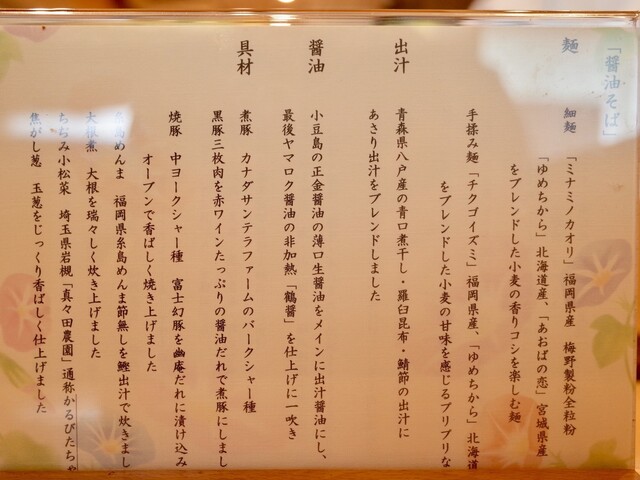 「醤油そば」
麺 細麺 「ミナミノカオリ」福岡県産 梅野製粉全粒粉
「ゆめちから」北海道産、「あおばの恋」宮城県産
をブレンドした小麦の香りコシを楽しむ麺
手揉み麺 「チクゴイズミ」福岡県産、「ゆめちから」北海道
をブレンドした小麦の甘味を感じるプリプリな
出汁 青森県八戸産の青口煮干し・羅臼昆布・鯖節の出汁に
あさり出汁をブレンドしました
醤油 小豆島の正金醤油の薄口生醤油をメインに出汁醤油にし、
最後ヤマロク醤油の非加熱「鶴醤」を仕上げに一吹き
具材 煮豚 カナダサンテラファームのバークシャー種
黒豚三枚肉を赤ワインたっぷりの醤油だれで煮豚にしまし
焼豚 中ヨークシャー種 富士幻豚を幽庵だれに漬け込み
オーブンで香ばしく焼き上げました
糸島めんま 福岡県糸島めんま節無しを鰹出汁で炊きまし
大根煮 大根を瑞々しく炊き上げました
ちぢみ小松菜 埼玉県岩槻「真々田農園」通称かるびたちゃ
焦がし葱 玉葱をじっくり香ばしく仕上げました